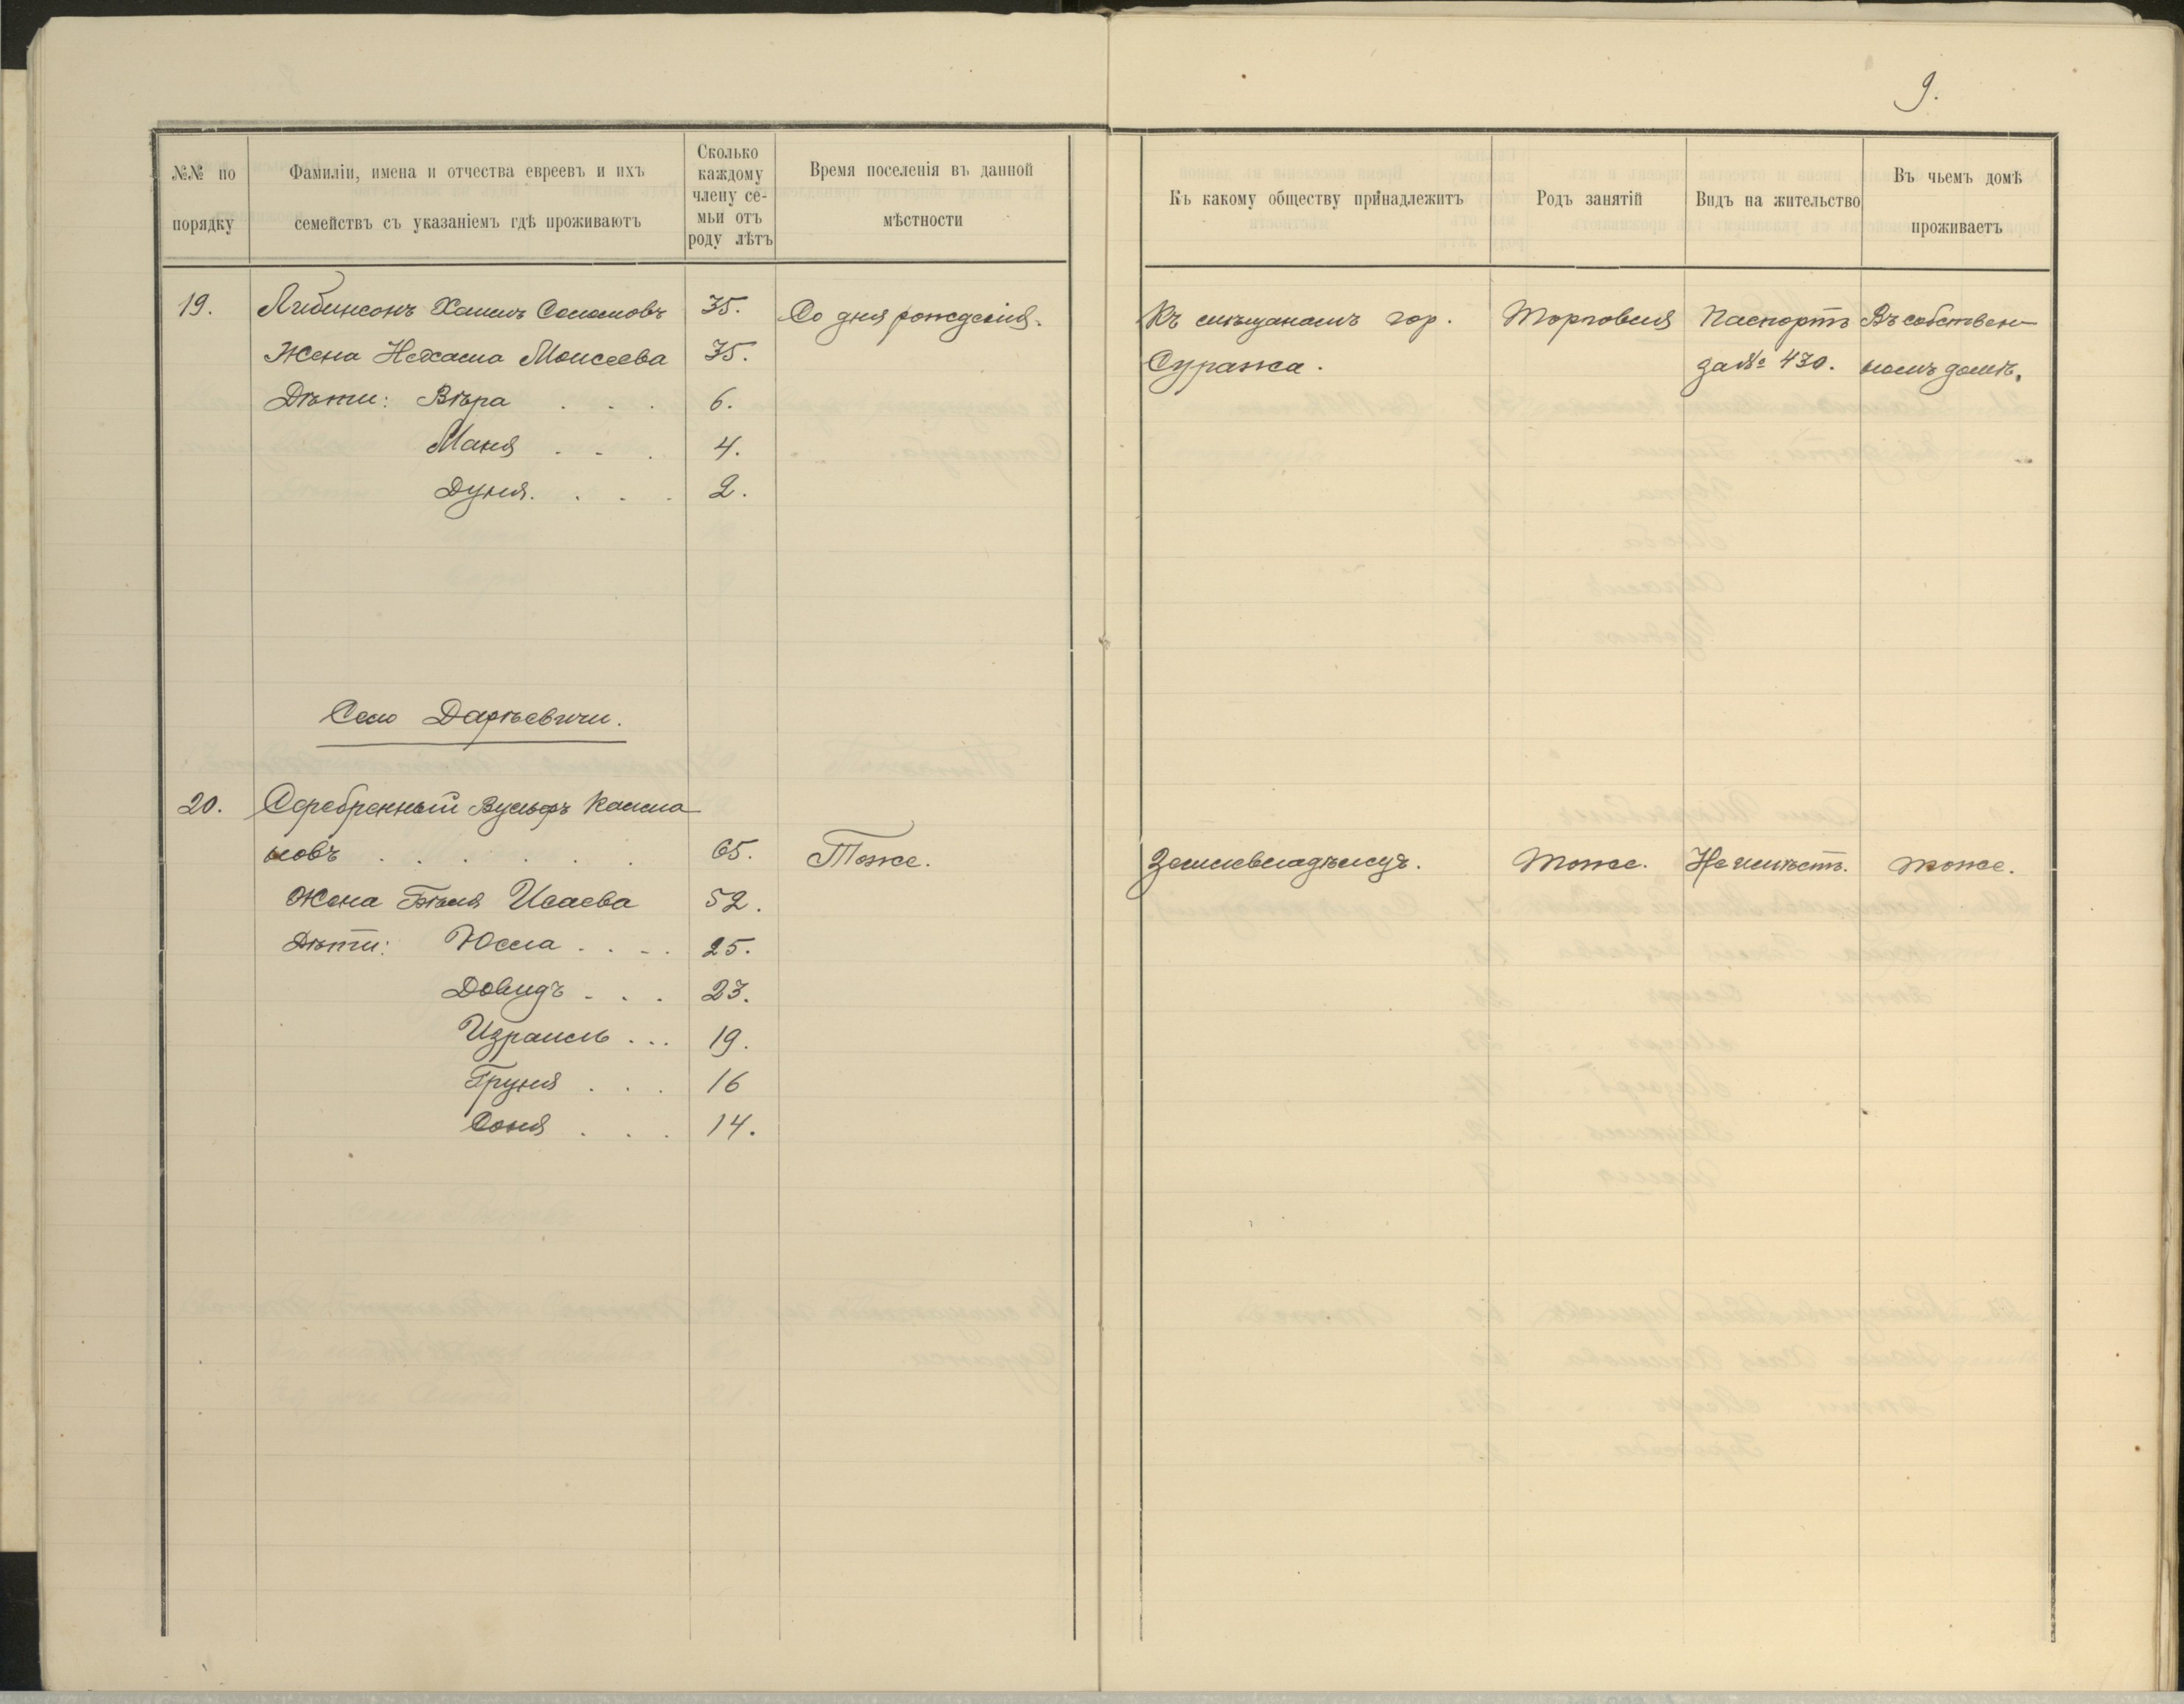 9.
№№ по порядку
Фамиліи, имена и отчества евреевъ и ихъ семействъ съ указаніемъ гдѣ проживаютъ
Сколько каждому члену се-мьи отъ роду лѣтъ
Время поселенія въ данной мѣстности
Къ какому обществу принадлежитъ
Родъ занятій
Видъ на жительство
Въ чьемъ домѣ проживаетъ
19. Либинсонъ Хаимъ 35. Со дня рожденія. Къ мѣщанамъ гор. Торговля Паспортъ Въ собствен-
Жена Нехама Моисеева 35. Суража. за № 430. номъ домѣ.
Дѣти: Вѣра . . . 6.
Маня . . . 4.
Дуня. . . . 2.
Село
20. Серебренный Вульфъ Калма
новъ . . . . . . 65. Тоже. Землевладѣлецъ. Тоже. Не имѣетъ. Тоже.
Жена Исаева 52.
Дѣти: . . . . 25.
Довидъ . . . 23.
Израиль ... 19.
Груня . . . 16
Соня . . . 14.